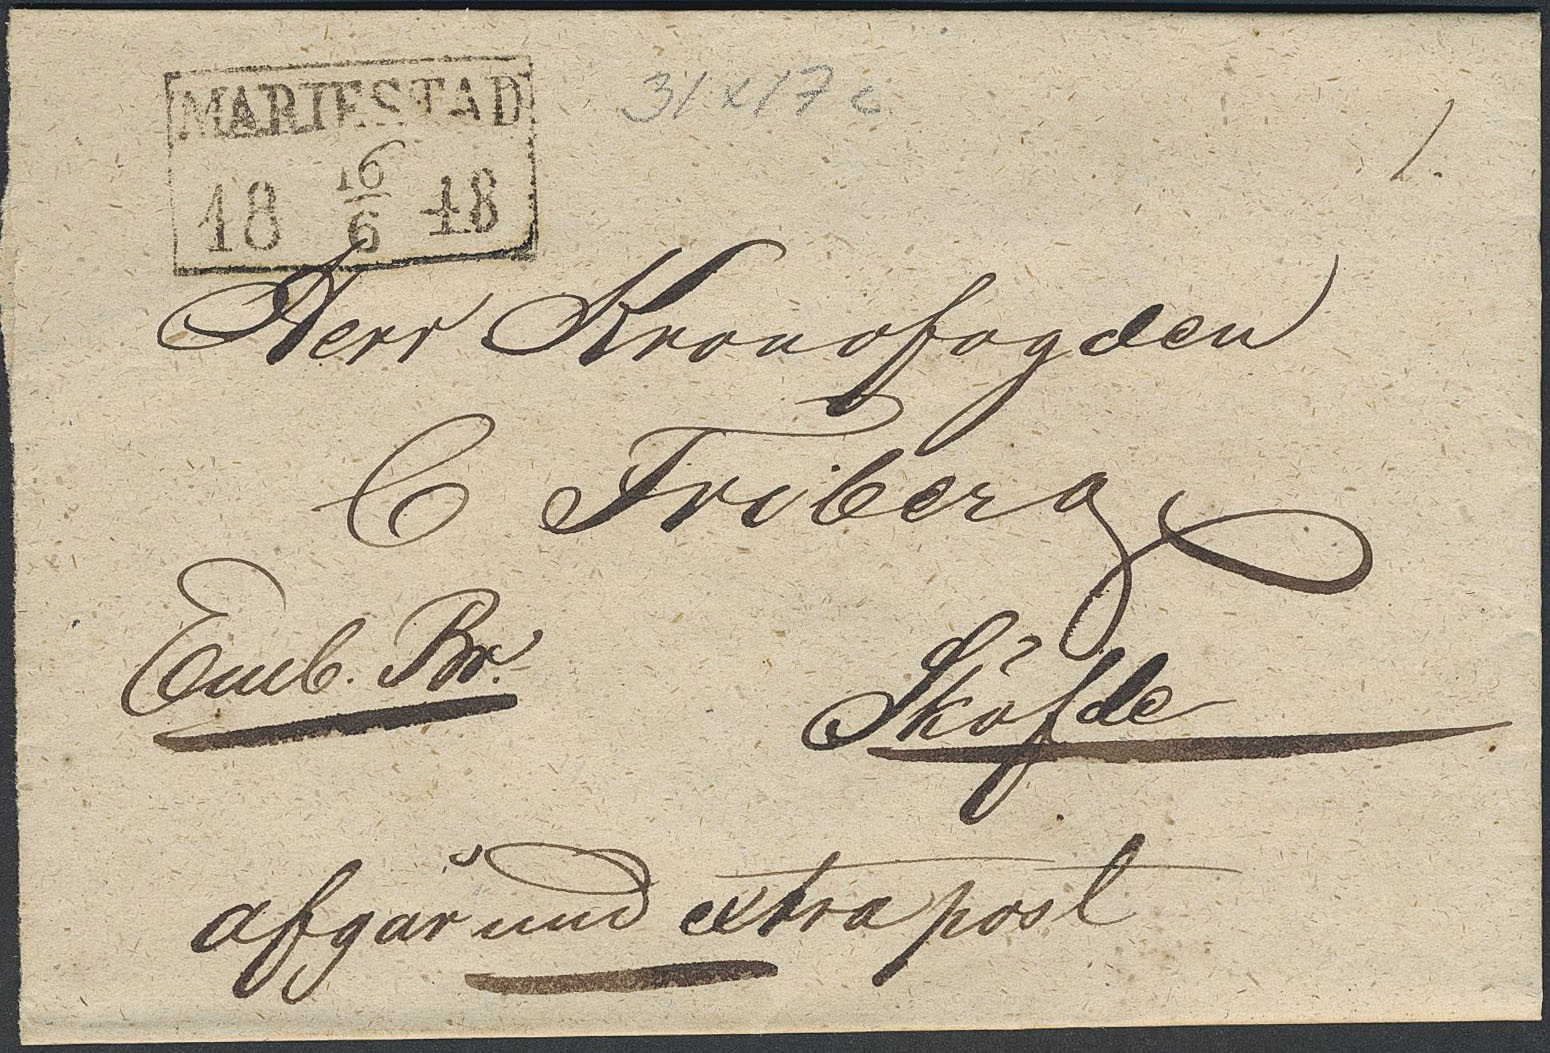 MARIESTAD
18 16/6 48
31 x 17 c
1.
Herr Kronofogden
C Friberg
Emb. Br.
Sköfde
afgår med extra post